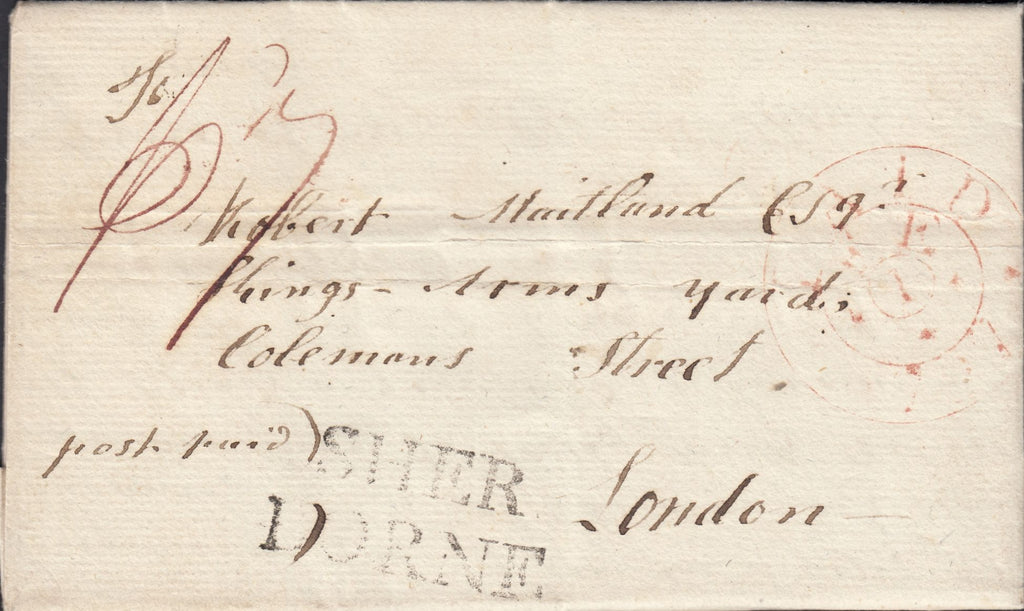 To
Robert Maitland Esqr
Kings Arms yard;
Colemans Street.
post paid)
SHER
BORNE
London